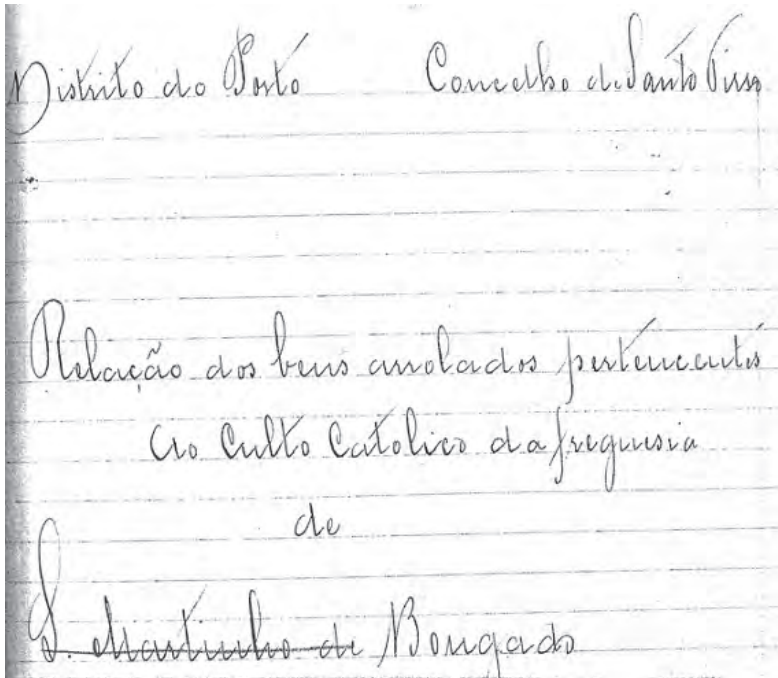 Distrito do Porto Concelho de Santo Tirso
Relação dos bens arrolados pertencentes
ao Culto Catolico da freguesia
de
S. Martinho de Bougado